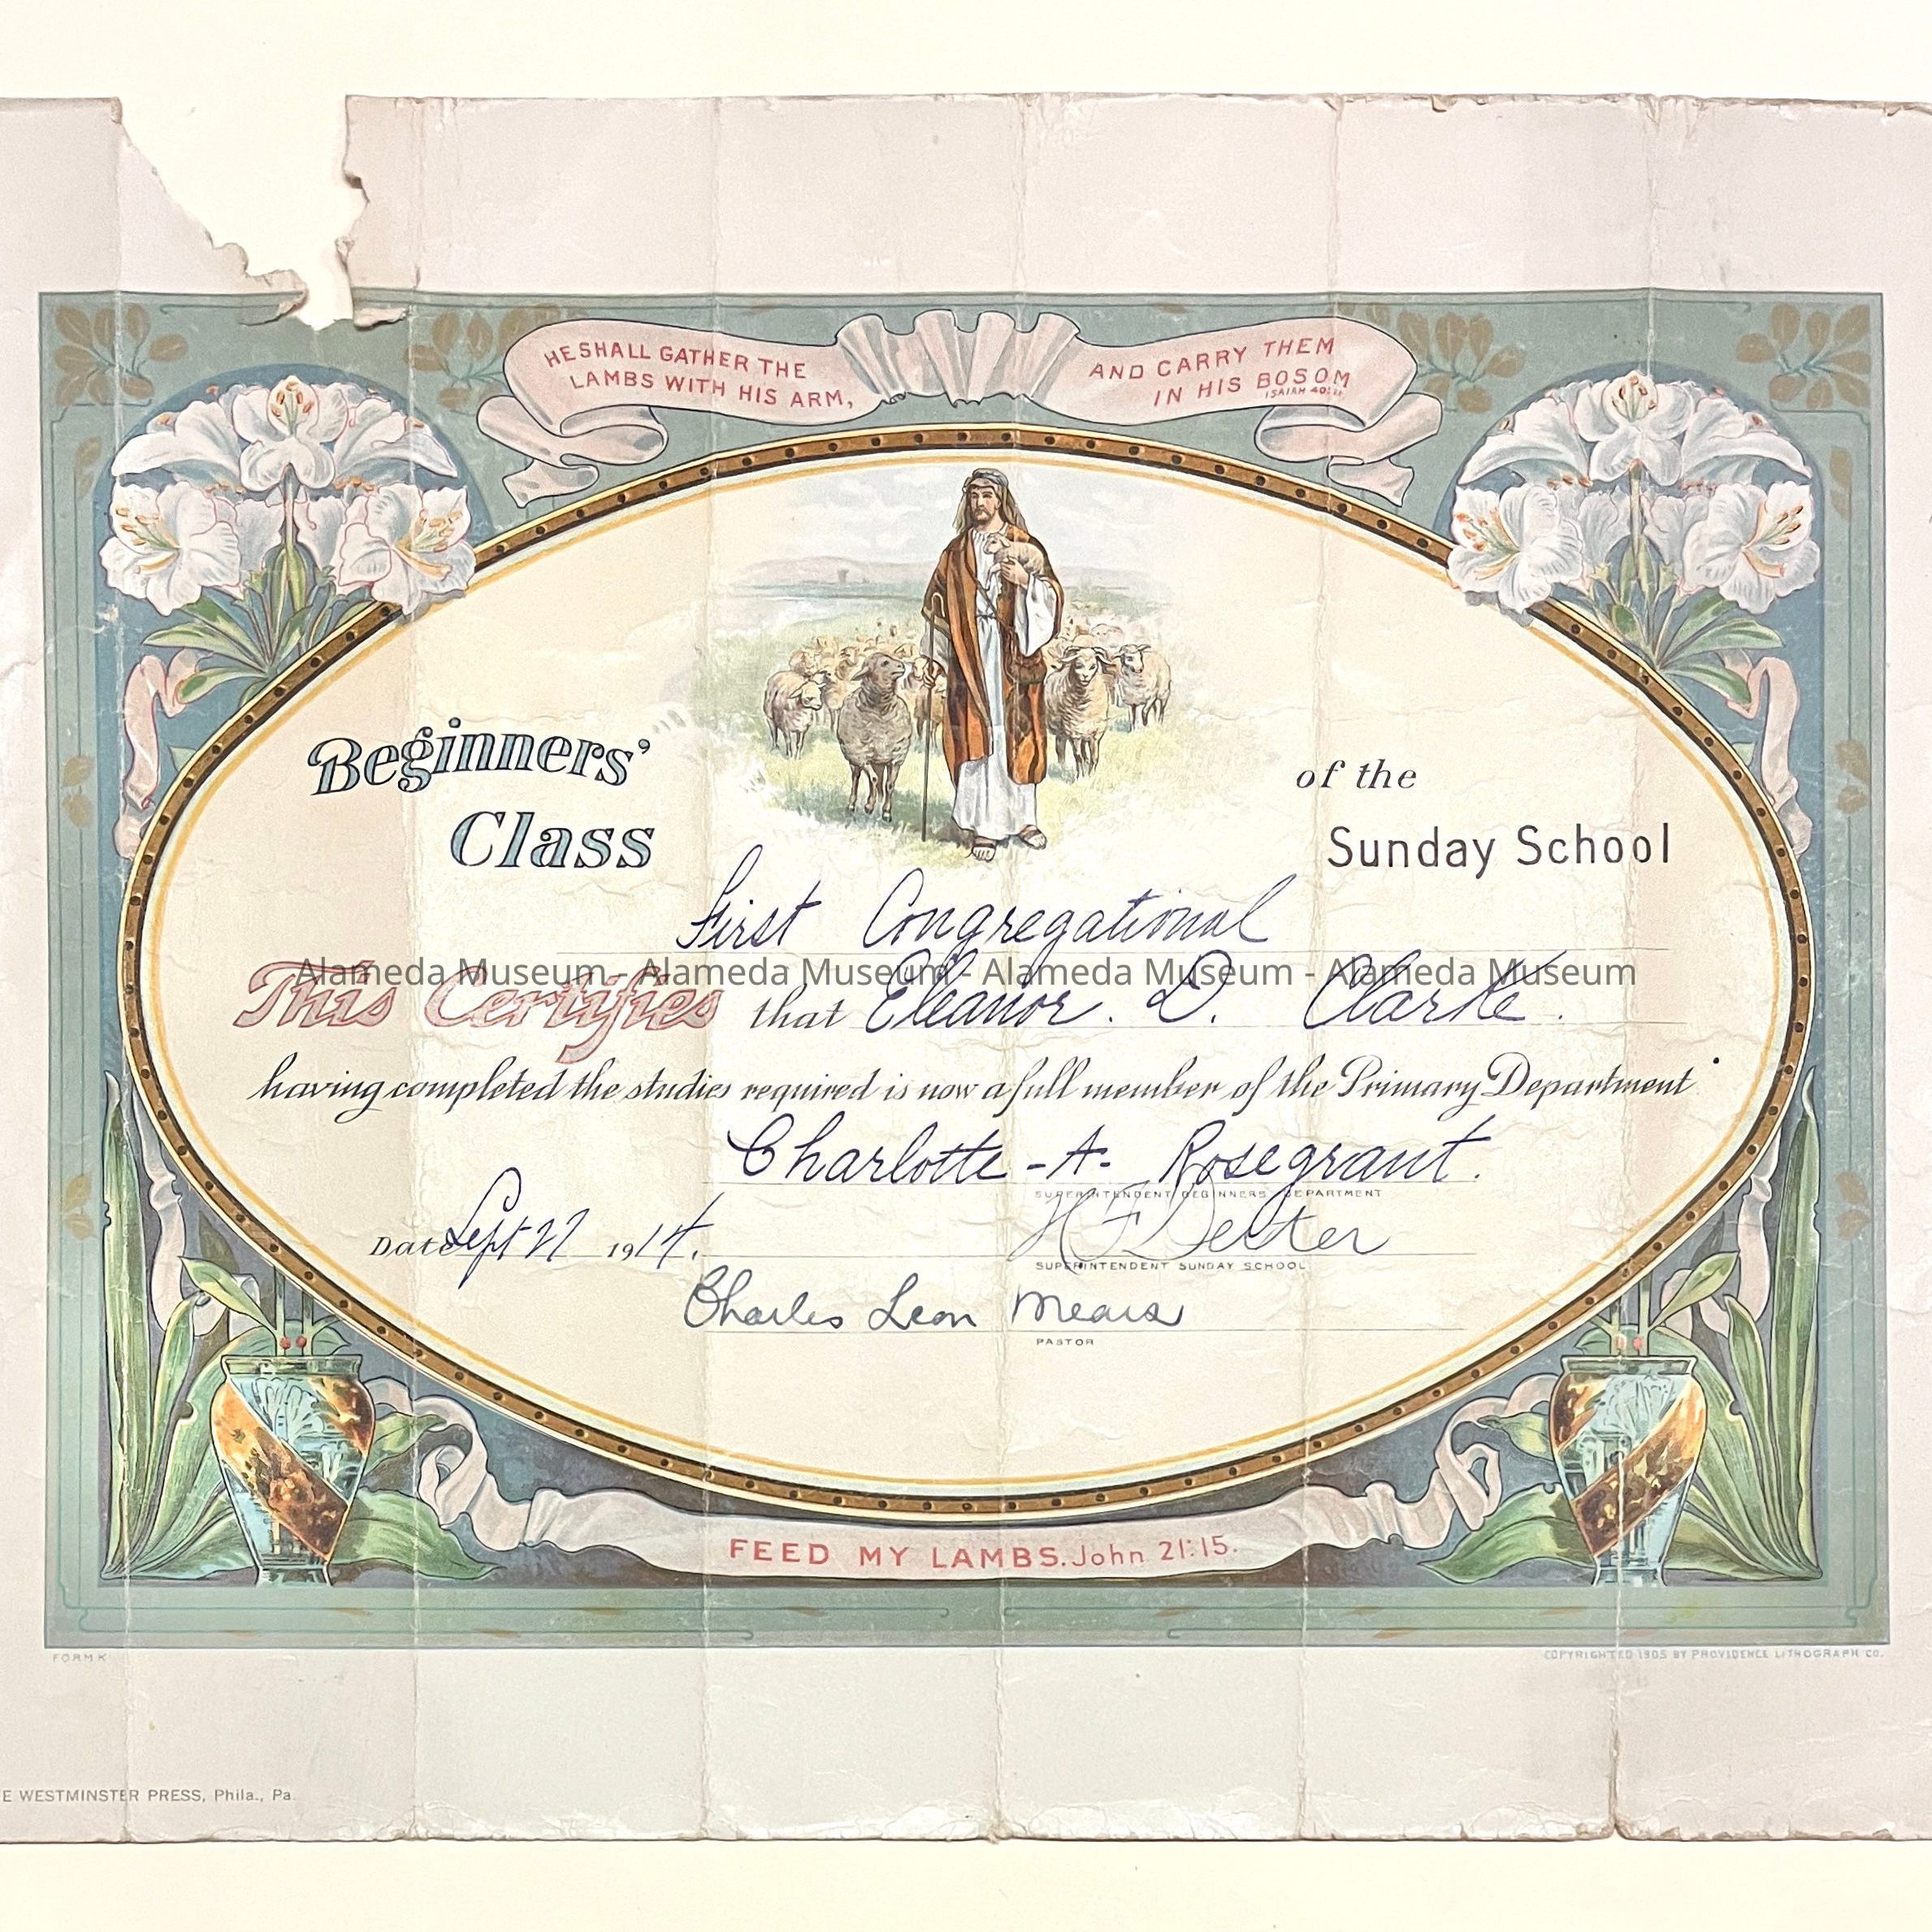 HE SHALL GATHER THE
LAMBS WITH HIS ARM,
AND CARRY THEM
IN HIS BOSOM
ISAIAH 40:11
Beginners'
Class
of the
Sunday School
First Congregational
Alameda Museum - Alameda Museum - Alameda Museum - Alameda Museum
This Certifies that Eleanor. D. Clarke.
having completed the studies required is now a full member of the Primary Department
Charlotte -A- Rosegrant.
SUPERINTENDENT BEGINNERS DEPARTMENT
Date Sept 27 1914.
H F
SUPERINTENDENT SUNDAY SCHOOL
Charles Leon Mears
PASTOR
FEED MY LAMBS. John 21:15.
FORM K
COPYRIGHTED 1905 BY PROVIDENCE LITHOGRAPH CO.
E WESTMINSTER PRESS, Phila., Pa.